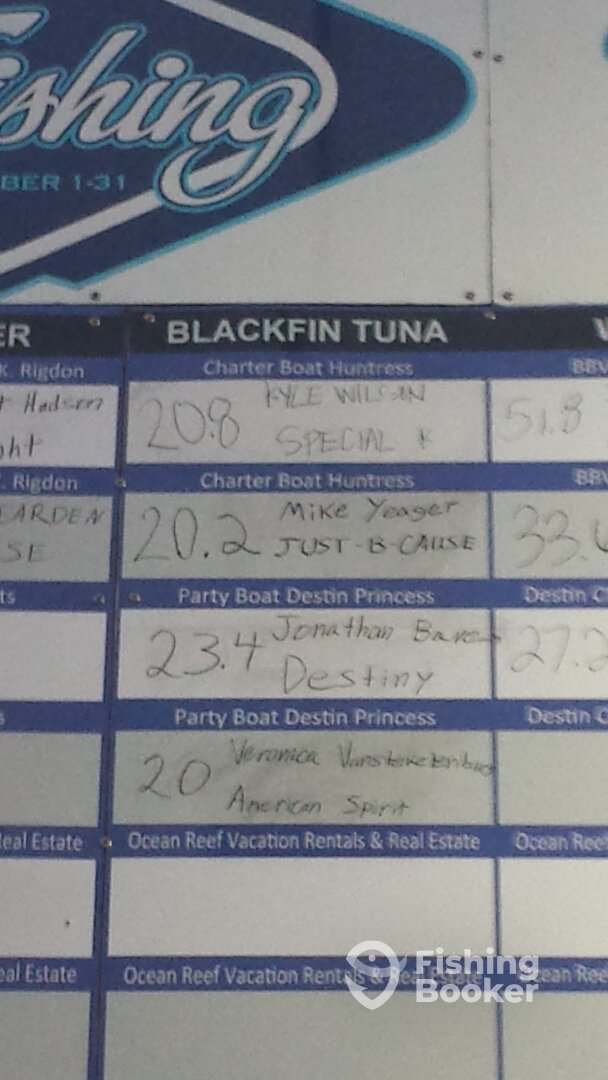 shing
BER 1-31
ER
BLACKFIN TUNA
K. Rigdon
Charter Boat Huntress
BBV
t Hudson
ght
20.8
KYLE WILSON
SPECIAL K
51.8
. Rigdon
Charter Boat Huntress
BBV
EARDEN
SE
20.2
Mike Yeager
JUST-B-CAUSE
33.
ts
Party Boat Destin Princess
Destin C
23.4
Jonathan
Destiny
27.2
s
Party Boat Destin Princess
Destin C
20
Veronica
American Spirit
Real Estate
Ocean Reef Vacation Rentals & Real Estate
Ocean Reef
eal Estate
Ocean Reef Vacation Rentals & Real Estate
cean Ree
Fishing
Booker